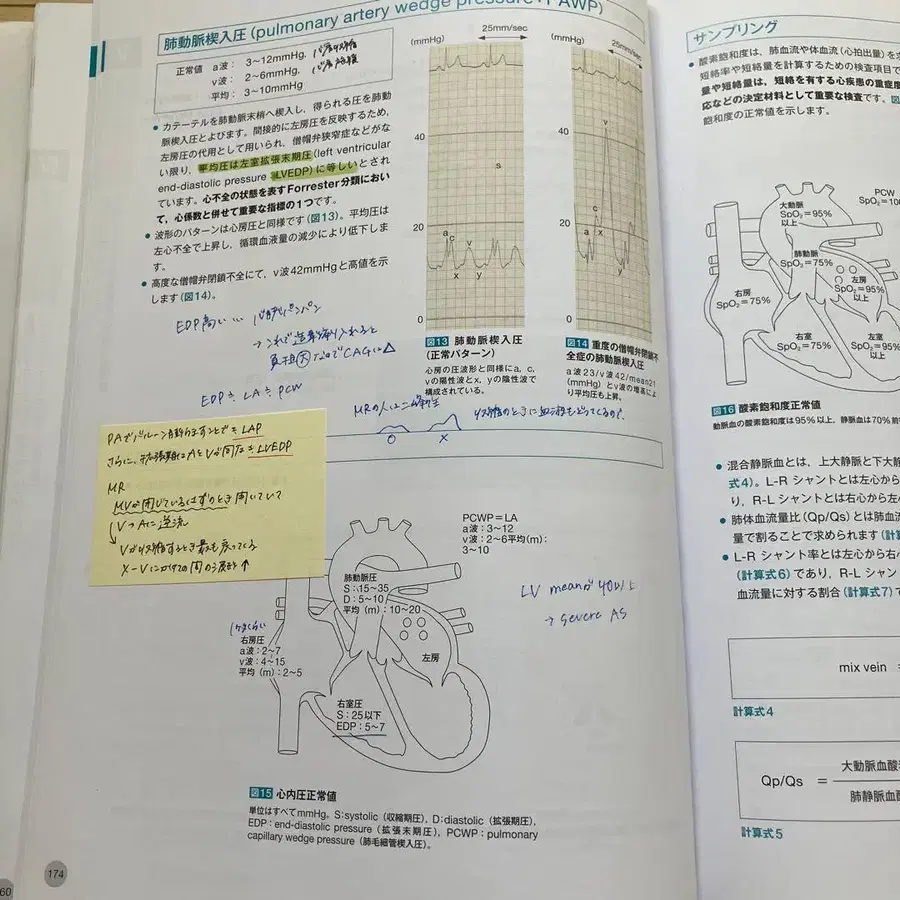 肺動脈楔入圧(pulmonary artery wedge pressure:PAWP)
正常値 a波: 3〜12mmHg,
v波: 2〜6mmHg,
平均: 3〜10mmHg
● カテーテルを肺動脈末梢へ楔入し,得られる圧を肺動
脈楔入圧とよびます。間接的に左房圧を反映するため,
左房圧の代用として用いられ,僧帽弁狭窄症などがな
い限り,平均圧は左室拡張末期圧(left ventricular
end-diastolic pressure:LVEDP)に等しいとされ
ています。心不全の状態を表すForrester分類におい
て,心係数と併せて重要な指標の1つです。
● 波形のパターンは心房圧と同様です(図13)。平均圧は
左心不全で上昇し,循環血液量の減少により低下しま
す。
● 高度な僧帽弁閉鎖不全にて,v波42mmHgと高値を示
します(図14)。
EDP高い…
負担大なのでCAGに△
EDP≒LA≒PCW
(mmHg)
25mm/sec
40
20
0
s
a
c
v
x
y
図13 肺動脈楔入圧
(正常パターン)
心房の圧波形と同様にa,c,
vの陽性波とx,yの陰性波で
構成されている。
(mmHg)
25mm/sec
40
20
0
v
c
a
x
x
y
図14 重度の僧帽弁閉鎖不
全症の肺動脈楔入圧
a波23/v波42/mean21
(mmHg)とv波の増高によ
り平均圧も上昇。
MRの人は二峰性
収縮のときに血液もどってくるので,
○
×
PAでバルーン膨らますことで≒LAP
さらに,拡張期はAとVが同じ≒LVEDP
MR
MVが閉じているはずのとき開いていて
V→Aに逆流
Vが収縮するとき最も戻ってくる
PCWP=LA
a波:3〜12
v波:2〜6平均(m):
3〜10
肺動脈圧
S:15〜35
D:5〜10
平均(m):10〜20
右房圧
a波:2〜7
v波:4〜15
平均(m):2〜5
左房
右室圧
S:25以下
EDP:5〜7
LV meanが40以上
→severe AS
図15 心内圧正常値
単位はすべてmmHg。S:systolic(収縮期圧),D:diastolic(拡張期圧),
EDP:end-diastolic pressure(拡張末期圧),PCWP:pulmonary
capillary wedge pressure(肺毛細管楔入圧)。
174
60
サンプリング
● 酸素飽和度は,肺血流や体血流(心拍出量)を求
短絡率や短絡量を計算するための検査項目で
量や短絡量は,短絡を有する心疾患の重症度
応などの決定材料として重要な検査です。図
飽和度の正常値を示します。
大動脈
SpO₂=95%
以上
PCW
SpO₂=100
肺動脈
SpO₂=75%
左房
SpO₂=95%
以上
右房
SpO₂=75%
右室
SpO₂=75%
左室
SpO₂=95%
以上
図16 酸素飽和度正常値
動脈血の酸素飽和度は95%以上,静脈血は70%前
● 混合静脈血とは,上大静脈と下大静
式4)。L-Rシャントとは左心から
り,R-Lシャントとは右心から左
● 肺体血流量比(Qp/Qs)とは肺血流
量で割ることで求められます(計算
● L-Rシャント率とは左心から右
(計算式6)であり,R-Lシャン
血流量に対する割合(計算式7)で
mix vein =
計算式4
Qp/Qs =
大動脈血酸
肺静脈血酸
計算式5